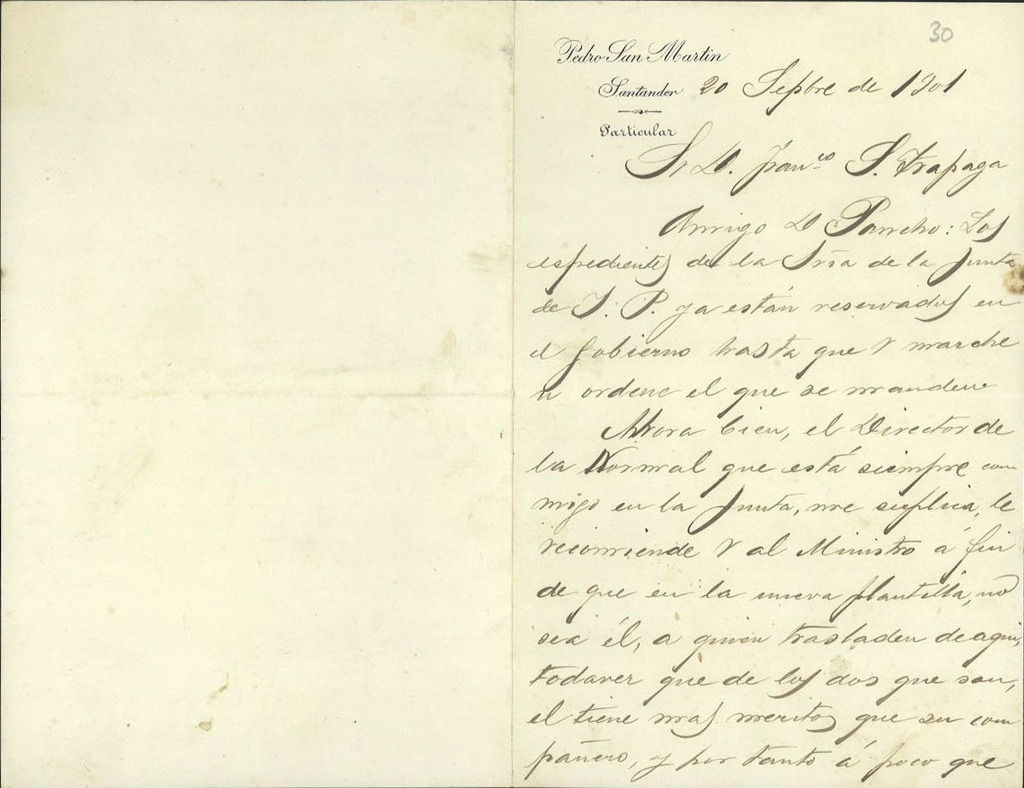 30
Pedro San Martin
Santander 20 Sepbre de 1901
Particular
Sr D. Franco S. Trapaga
Amigo D Pancho: Los
espedientes de la Sria de la Junta
de I. P. ya están reservados en
el Gobierno hasta que V marche
u ordene el que se manden
Ahora bien, el Director de
la Normal que está siempre con
migo en la Junta, me suplica, le
recomiende V al Ministro á fin
de que en la nueva plantilla, no
sea él, a quien trasladen de aqui,
todavez que de los dos que son,
el tiene mas meritos que su com
pañero, y por tanto á poco que